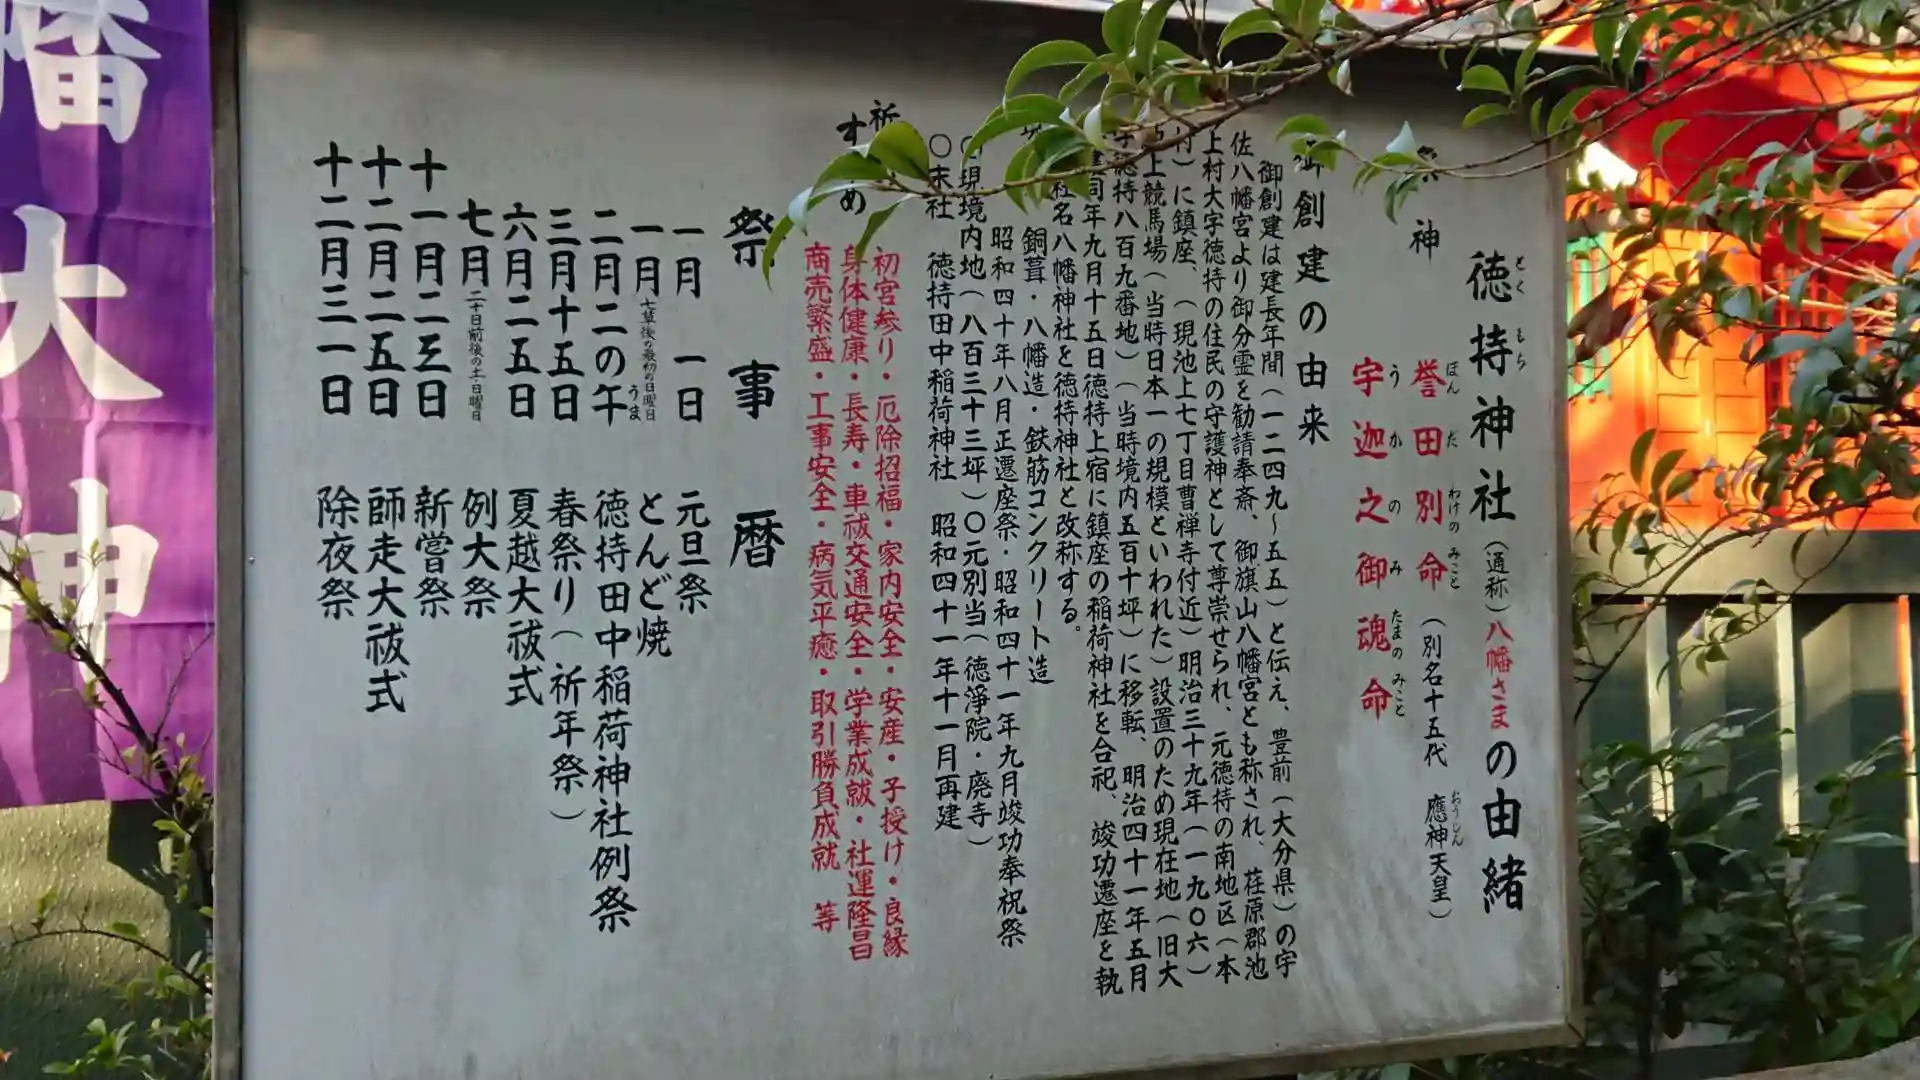 徳持神社（通称）八幡さまの由緒
とく もち
神
誉田別命（別名十五代 應神天皇）
ほん だ わけの みこと おうじん
宇迦之御魂命
う か の み たまの みこと
御創建の由来
御創建は建長年間（一二四九～五五）と伝え、豊前（大分県）の宇
佐八幡宮より御分霊を勧請奉斎、御旗山八幡宮とも称され、荏原郡池
上村大字徳持の住民の守護神として尊崇せられ、元徳持の南地区（本
村）に鎮座、（現池上七丁目曹禅寺付近）明治三十九年（一九〇六）
上競馬場（当時日本一の規模といわれた）設置のため現在地（旧大
字徳持八百九番地）（当時境内五百十坪）に移転、明治四十一年五月
同年九月十五日徳持上宿に鎮座の稲荷神社を合祀、竣功遷座を執
社名八幡神社を徳持神社と改称する。
銅葺・八幡造・鉄筋コンクリート造
昭和四十年八月正遷座祭・昭和四十一年九月竣功奉祝祭
現境内地（八百三十三坪）〇元別当（徳淨院・廃寺）
〇末社 徳持田中稲荷神社 昭和四十一年十一月再建
祈
すめ
初宮参り・厄除招福・家内安全・安産・子授け・良縁
身体健康・長寿・車祓交通安全・学業成就・社運隆昌
商売繁盛・工事安全・病気平癒・取引勝負成就 等
祭事暦
一月 一日 元旦祭
一月 七草後の最初の日曜日 とんど焼
二月二の午 徳持田中稲荷神社例祭
うま
三月十五日 春祭り（祈年祭）
六月二五日 夏越大祓式
七月 二十日前後の土・日曜日 例大祭
十一月二三日 新嘗祭
十二月二五日 師走大祓式
十二月三一日 除夜祭
幡大神